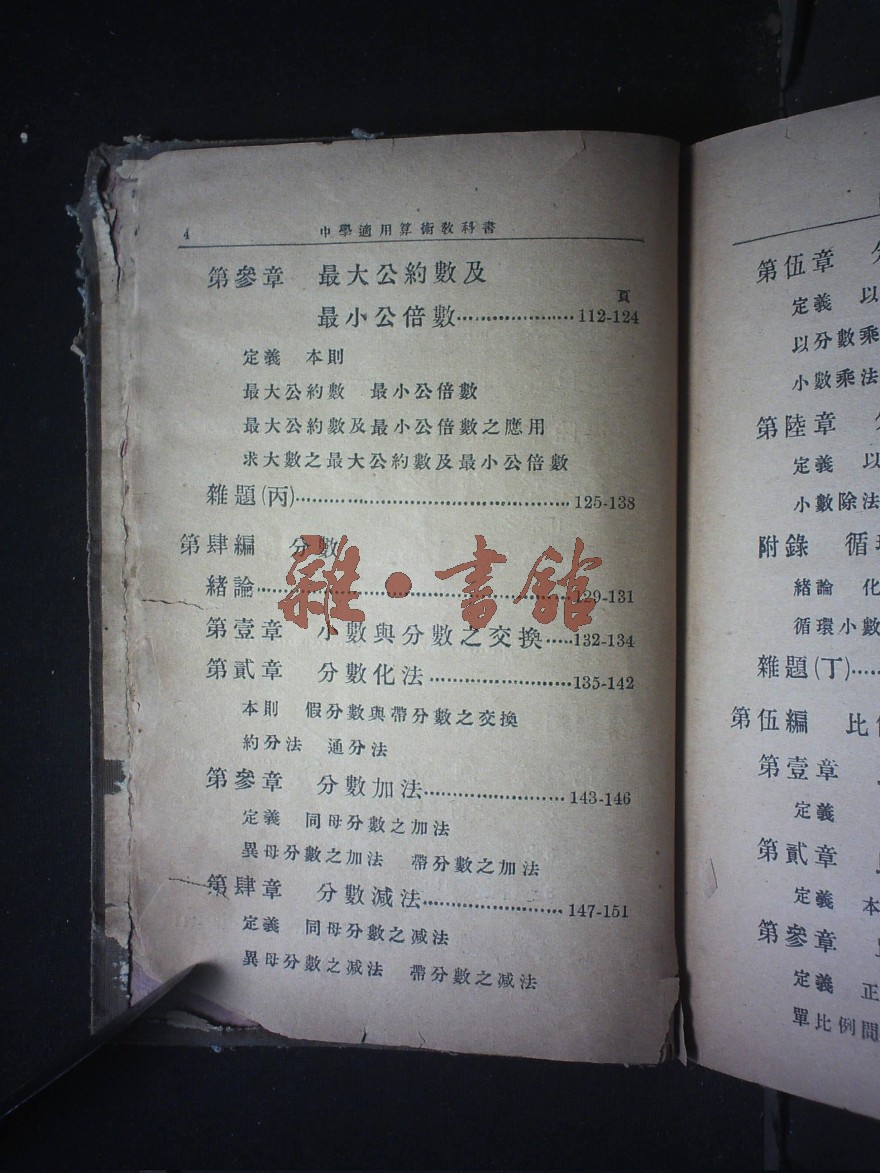 4 中學適用算術教科書
第參章 最大公約數及
頁
最小公倍數····················112-124
定義 本則
最大公約數 最小公倍數
最大公約數及最小公倍數之應用
求大數之最大公約數及最小公倍數
雜題(丙)················································125-138
第肆編 分數
緒論······················································129-131
第壹章 小數與分數之交換·····132-134
第貳章 分數化法························135-142
本則 假分數與帶分數之交換
約分法 通分法
第參章 分數加法························143-146
定義 同母分數之加法
異母分數之加法 帶分數之加法
第肆章 分數減法························147-151
定義 同母分數之減法
異母分數之減法 帶分數之減法
雜·書館
第伍章
定義 以
以分數乘
小數乘法
第陸章
定義 以
小數除法
附錄 循
緒論 化
循環小數
雜題(丁)····
第伍編 比
第壹章
定義
第貳章
定義 本
第參章
定義 正
單比例問